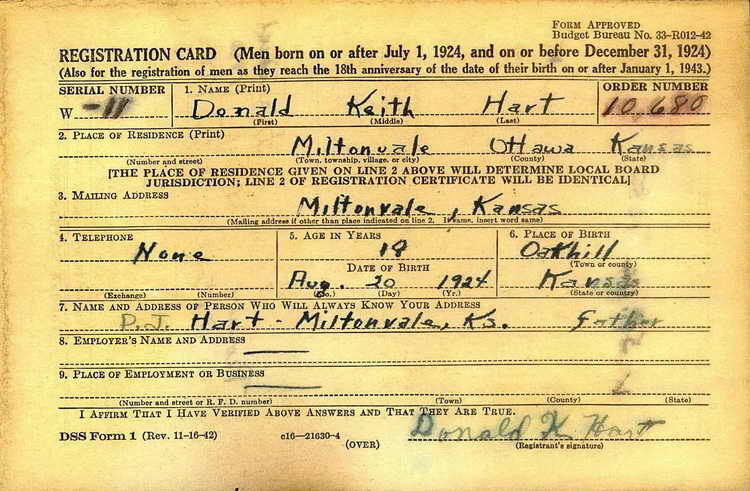 FORM APPROVED
Budget Bureau No. 33-R012-42
REGISTRATION CARD (Men born on or after July 1, 1924, and on or before December 31, 1924)
(Also for the registration of men as they reach the 18th anniversary of the date of their birth on or after January 1, 1943.)
SERIAL NUMBER 1. NAME (Print) ORDER NUMBER
W -11 Donald Keith Hart 10,680
(First) (Middle) (Last)
2. PLACE OF RESIDENCE (Print)
Miltonvale Ottawa Kansas
(Number and street) (Town, township, village, or city) (County) (State)
[THE PLACE OF RESIDENCE GIVEN ON LINE 2 ABOVE WILL DETERMINE LOCAL BOARD
JURISDICTION; LINE 2 OF REGISTRATION CERTIFICATE WILL BE IDENTICAL]
3. MAILING ADDRESS
Miltonvale, Kansas
(Mailing address if other than place indicated on line 2. If same, insert word same)
4. TELEPHONE 5. AGE IN YEARS 6. PLACE OF BIRTH
None 18 Oakhill
DATE OF BIRTH (Town or county)
Aug. 20 1924 Kansas
(Exchange) (Number) (Mo.) (Day) (Yr.) (State or country)
7. NAME AND ADDRESS OF PERSON WHO WILL ALWAYS KNOW YOUR ADDRESS
P.J. Hart - Miltonvale, Ks. father
8. EMPLOYER'S NAME AND ADDRESS
9. PLACE OF EMPLOYMENT OR BUSINESS
(Number and street or R. F. D. number) (Town) (County) (State)
I AFFIRM THAT I HAVE VERIFIED ABOVE ANSWERS AND THAT THEY ARE TRUE.
DSS Form 1 (Rev. 11-16-42) c16-21630-4 (OVER) Donald K Hart
(Registrant's signature)